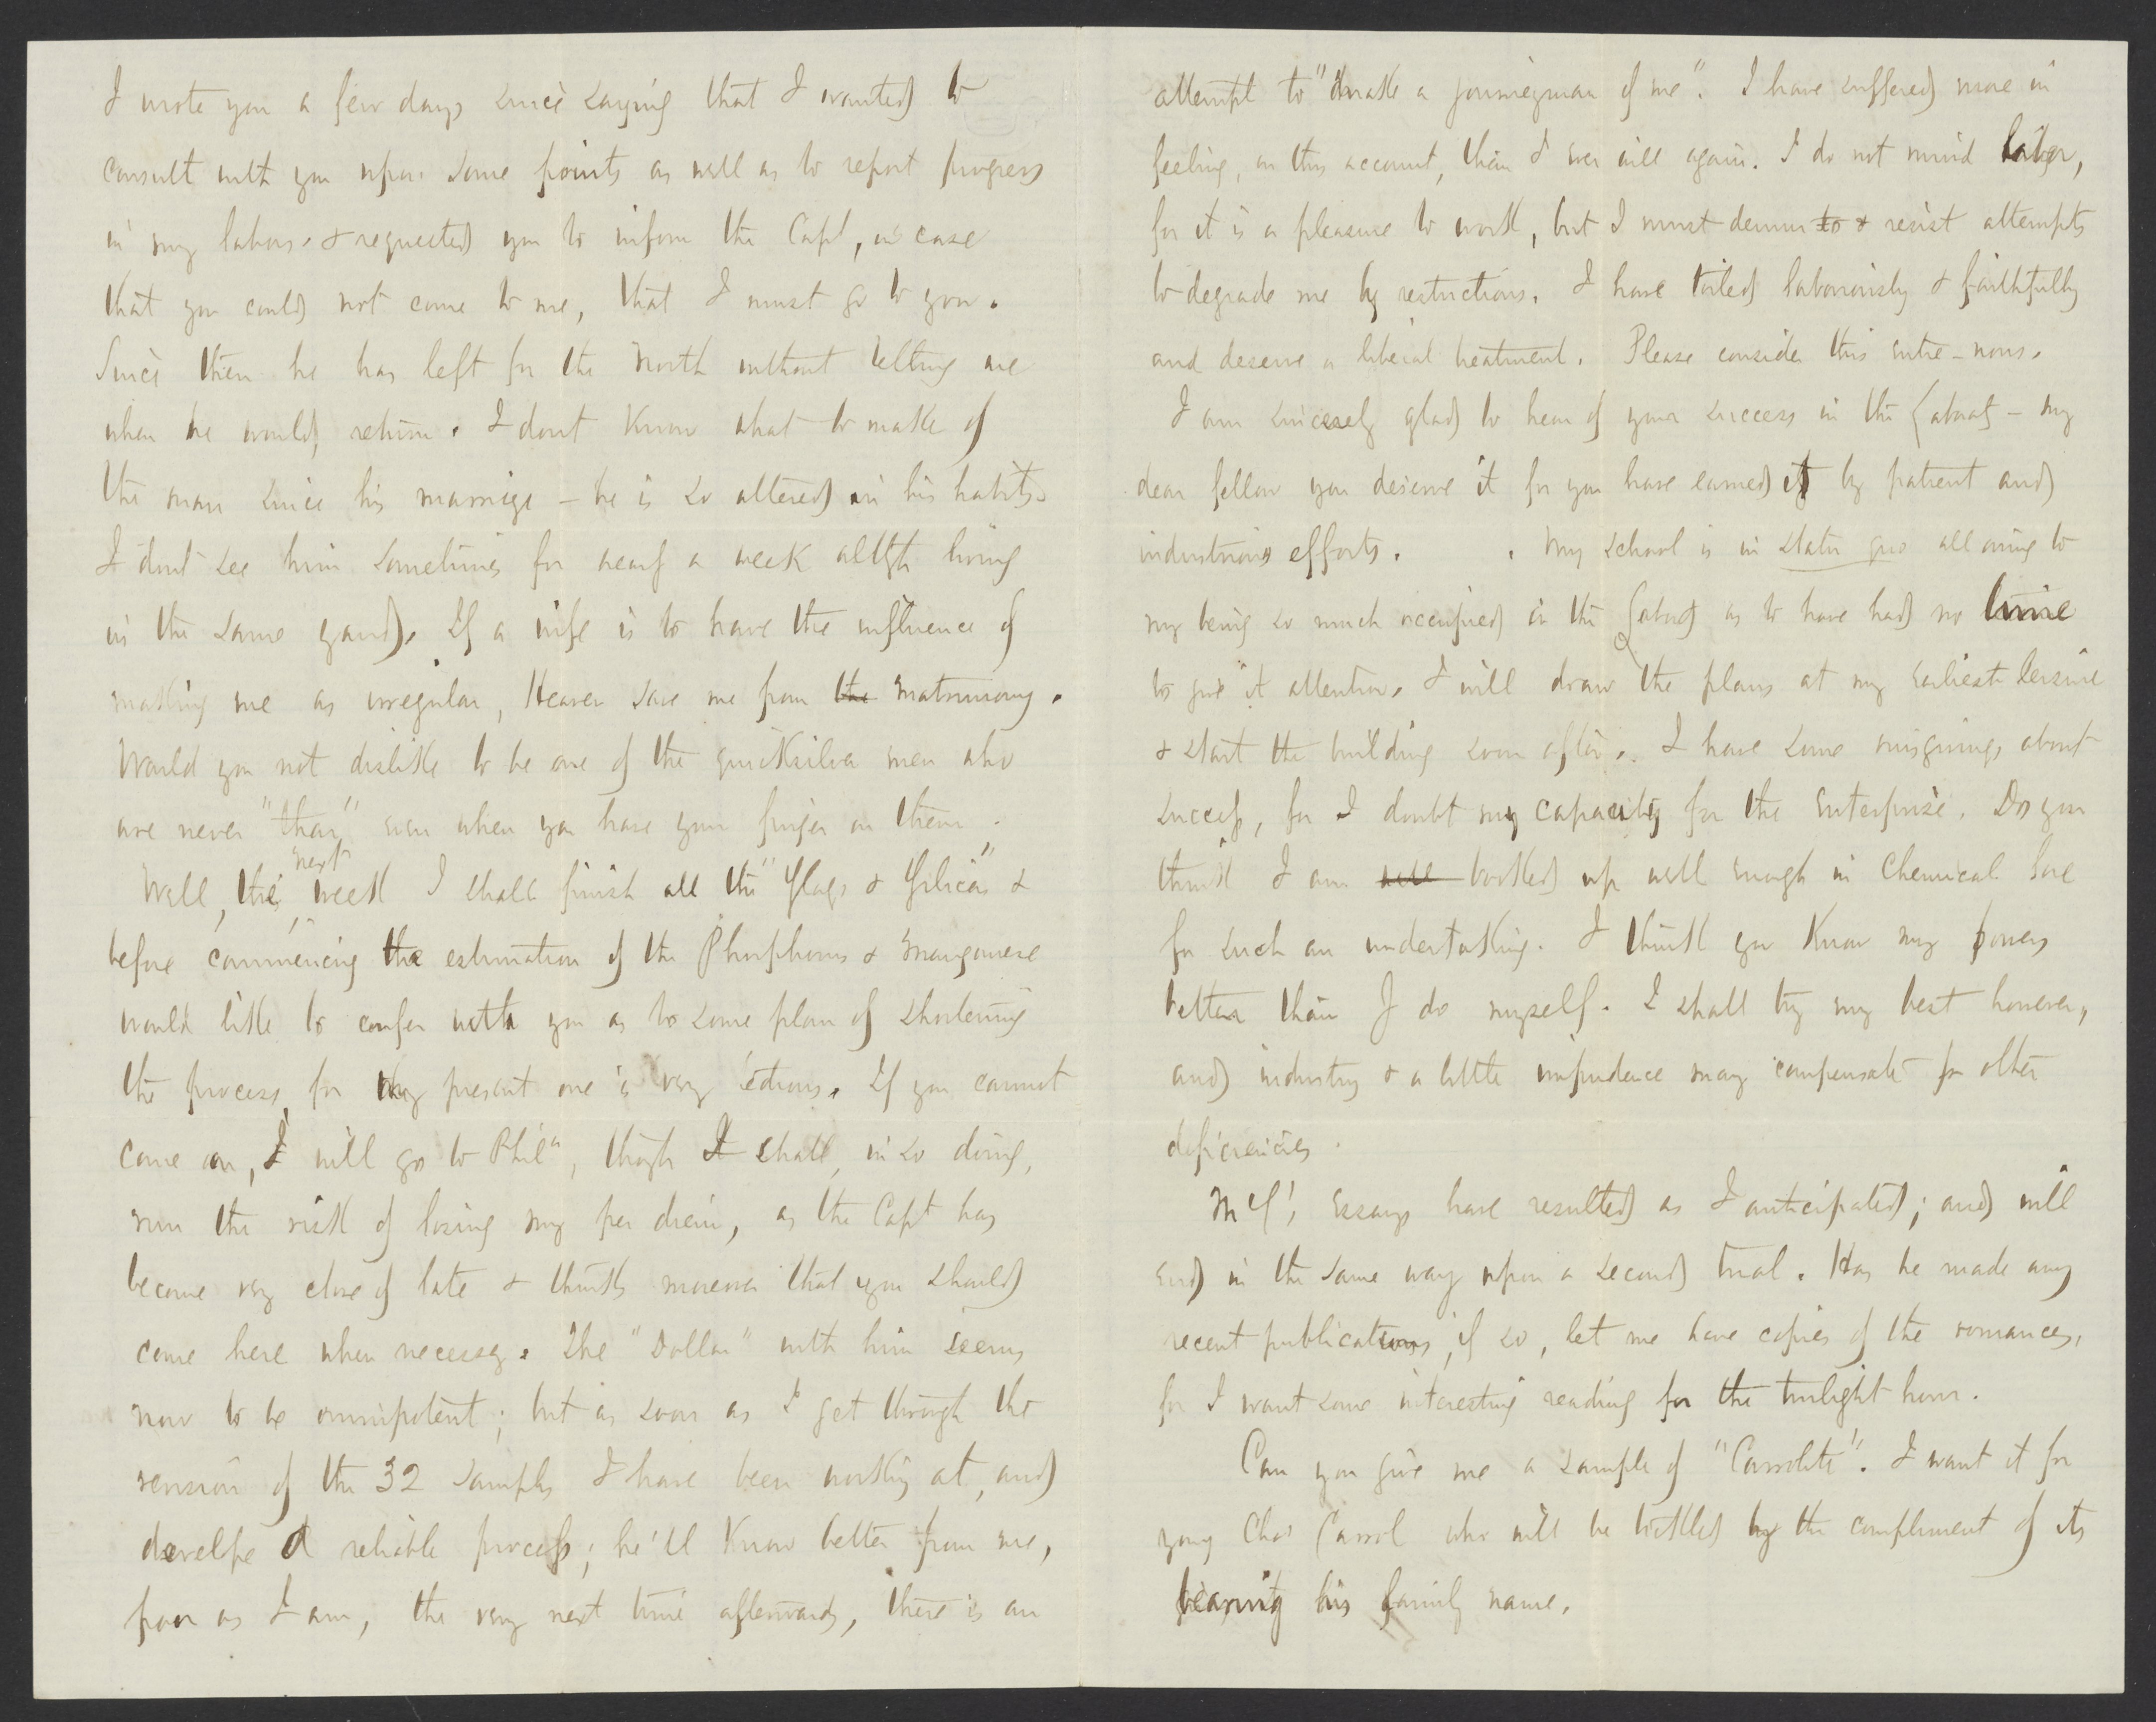 I wrote you a few days since saying that I wanted to
consult with you upon some points as well as to report progress
in my labors & requested you to inform the Capt, in case
that you could not come to me, that I must go to you.
Since then he has left for the North without telling me
when he would return. I dont know what to make of
the man since his marriage – he is so altered in his habits.
I dont see him sometimes for nearly a week altho living
in the same yard. If a wife is to have the influence of
making me as irregular, Heaven save me from the matrimony.
Would you not dislike to be one of the quicksilver men who
are never "thar" even when you have your finger on them.
Well, this next week I shall finish all the "Slags & Silicas" &
before commencing the estimation of the Phosphorus & Manganese
would like to confer with you as to some plan of shortening
the process, for my present one is very tedious. If you cannot
come on, I will go to Phila, though I shall, in so doing,
run the risk of losing my per diem, as the Capt has
become very close of late & thinks moreover that you should
come here when necessary. The "Dollar" with him seems
now to be omnipotent; but as soon as I get through the
revision of the 32 samples I have been working at, and
develpe a reliable process; he'll know better from me,
poor as I am, the very next time afterwards, there is an
attempt to "make a journeyman of me". I have suffered more in
feeling, on this account, than I ever will again. I do not mind labor,
for it is a pleasure to work, but I must demur to & resist attempts
to degrade me by restrictions. I have toiled laboriously & faithfully
and deserve a liberal treatment. Please consider this entre-nous.
I am sincerely glad to hear of your success in the Laboraty – my
dear fellow you deserve it for you have earned it by patient and
industrious efforts. . My school is in statu quo all owing to
my being so much occupied in the Laboraty as to have had no time
to give it attention. I will draw the plans at my earliest leisure
& start the building soon after. I have some misgivings about
success, for I doubt my capacity for the enterprise. Do you
think I am well booked up well enough in Chemical lore
for such an undertaking. I think you know my powers
better than I do myself. I shall try my best however,
and industry & a little impudence may compensate for other
deficiencies.
essays have resulted as I anticipated; and will
end in the same way upon a second trial. Has he made any
recent publications, if so, let me have copies of the romances,
for I want some interesting reading for the twilight hour.
Can you give me a sample of "Carrolite". I want it for
young Chas Carrol who will be tickled by the compliment of its
bearing his family name.